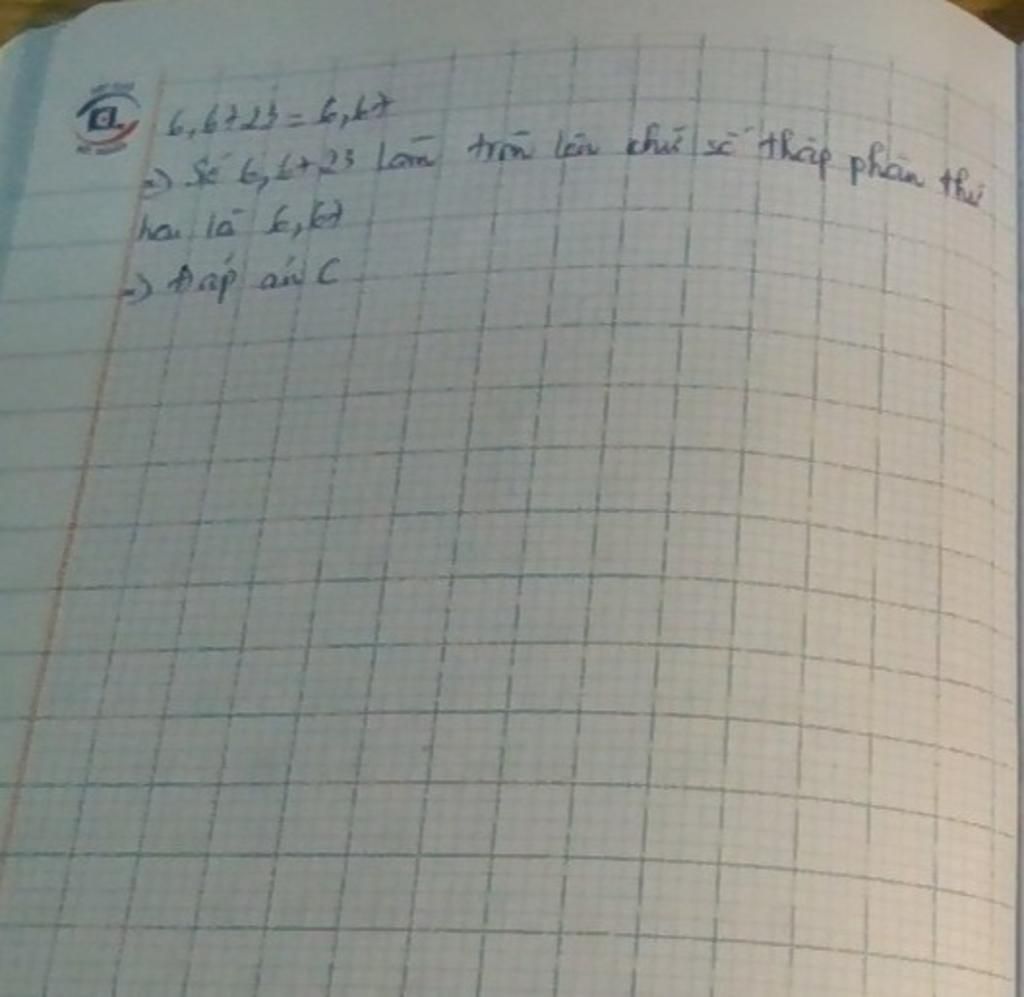 6,6723 = 6,67
=) Số 6,6723 làm tròn lên chữ số thập phân thứ
hai là 6,67
=) Đáp án C